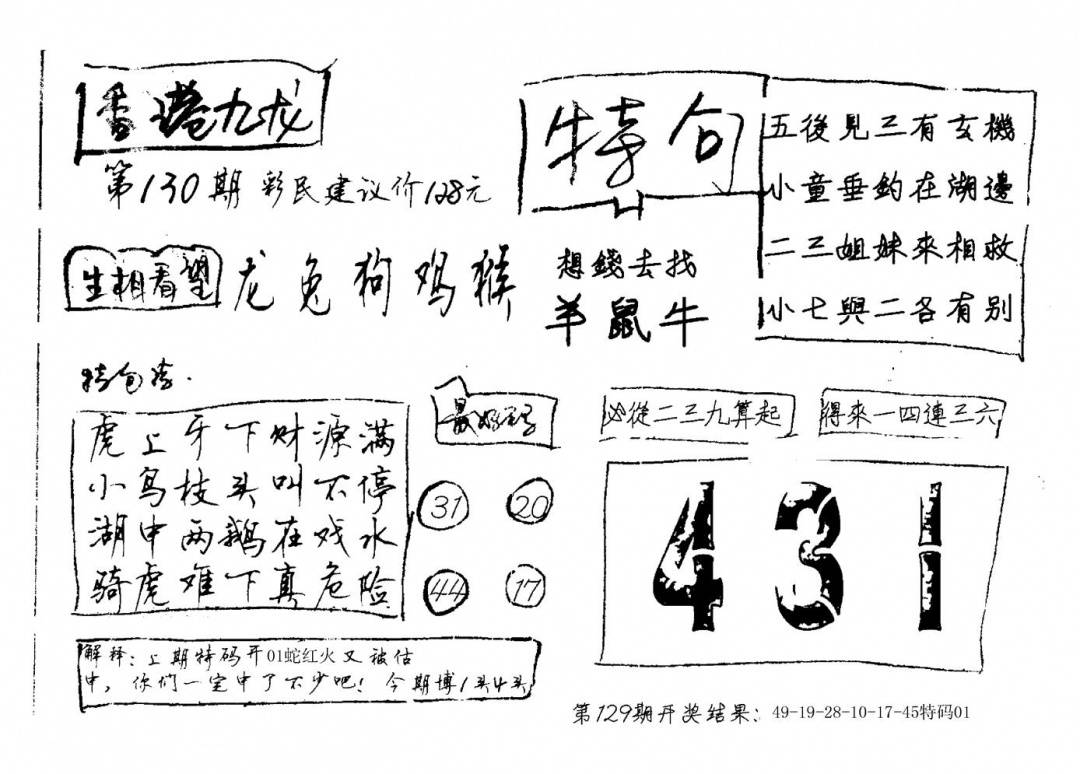 香港九龙
第130期 彩民建议价128元
特句
五後見三有玄機
小童垂釣在湖邊
二三姐妹來相救
小七與二各有别
生相看望
龙兔狗鸡猴
想錢去找
羊鼠牛
虎上牙下财源满
小鸟枝头叫不停
湖中两鹅在戏水
骑虎难下真危险
31 20
44 17
必從二三九算起
得來一四連三六
431
解释:上期特码开01蛇红火又被估
中,你们一定中了不少吧!今期博1头4头
第129期开奖结果:49-19-28-10-17-45特码01